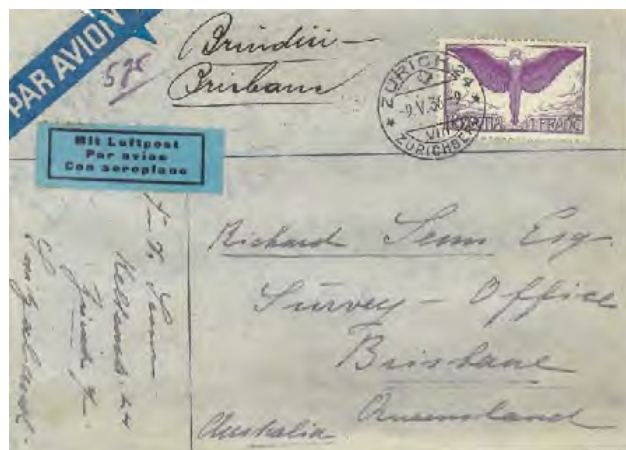 PAR AVION
575
Brindisi -
Brisbane
ZÜRICH
-9.V.36-9
VIII
ZÜRICHBERG
1 FRANC
Mit Luftpost
Par avion
Con aeroplano
Richard Senn Esq.
Survey - Office
Brisbane
Queensland
Australia
Senn